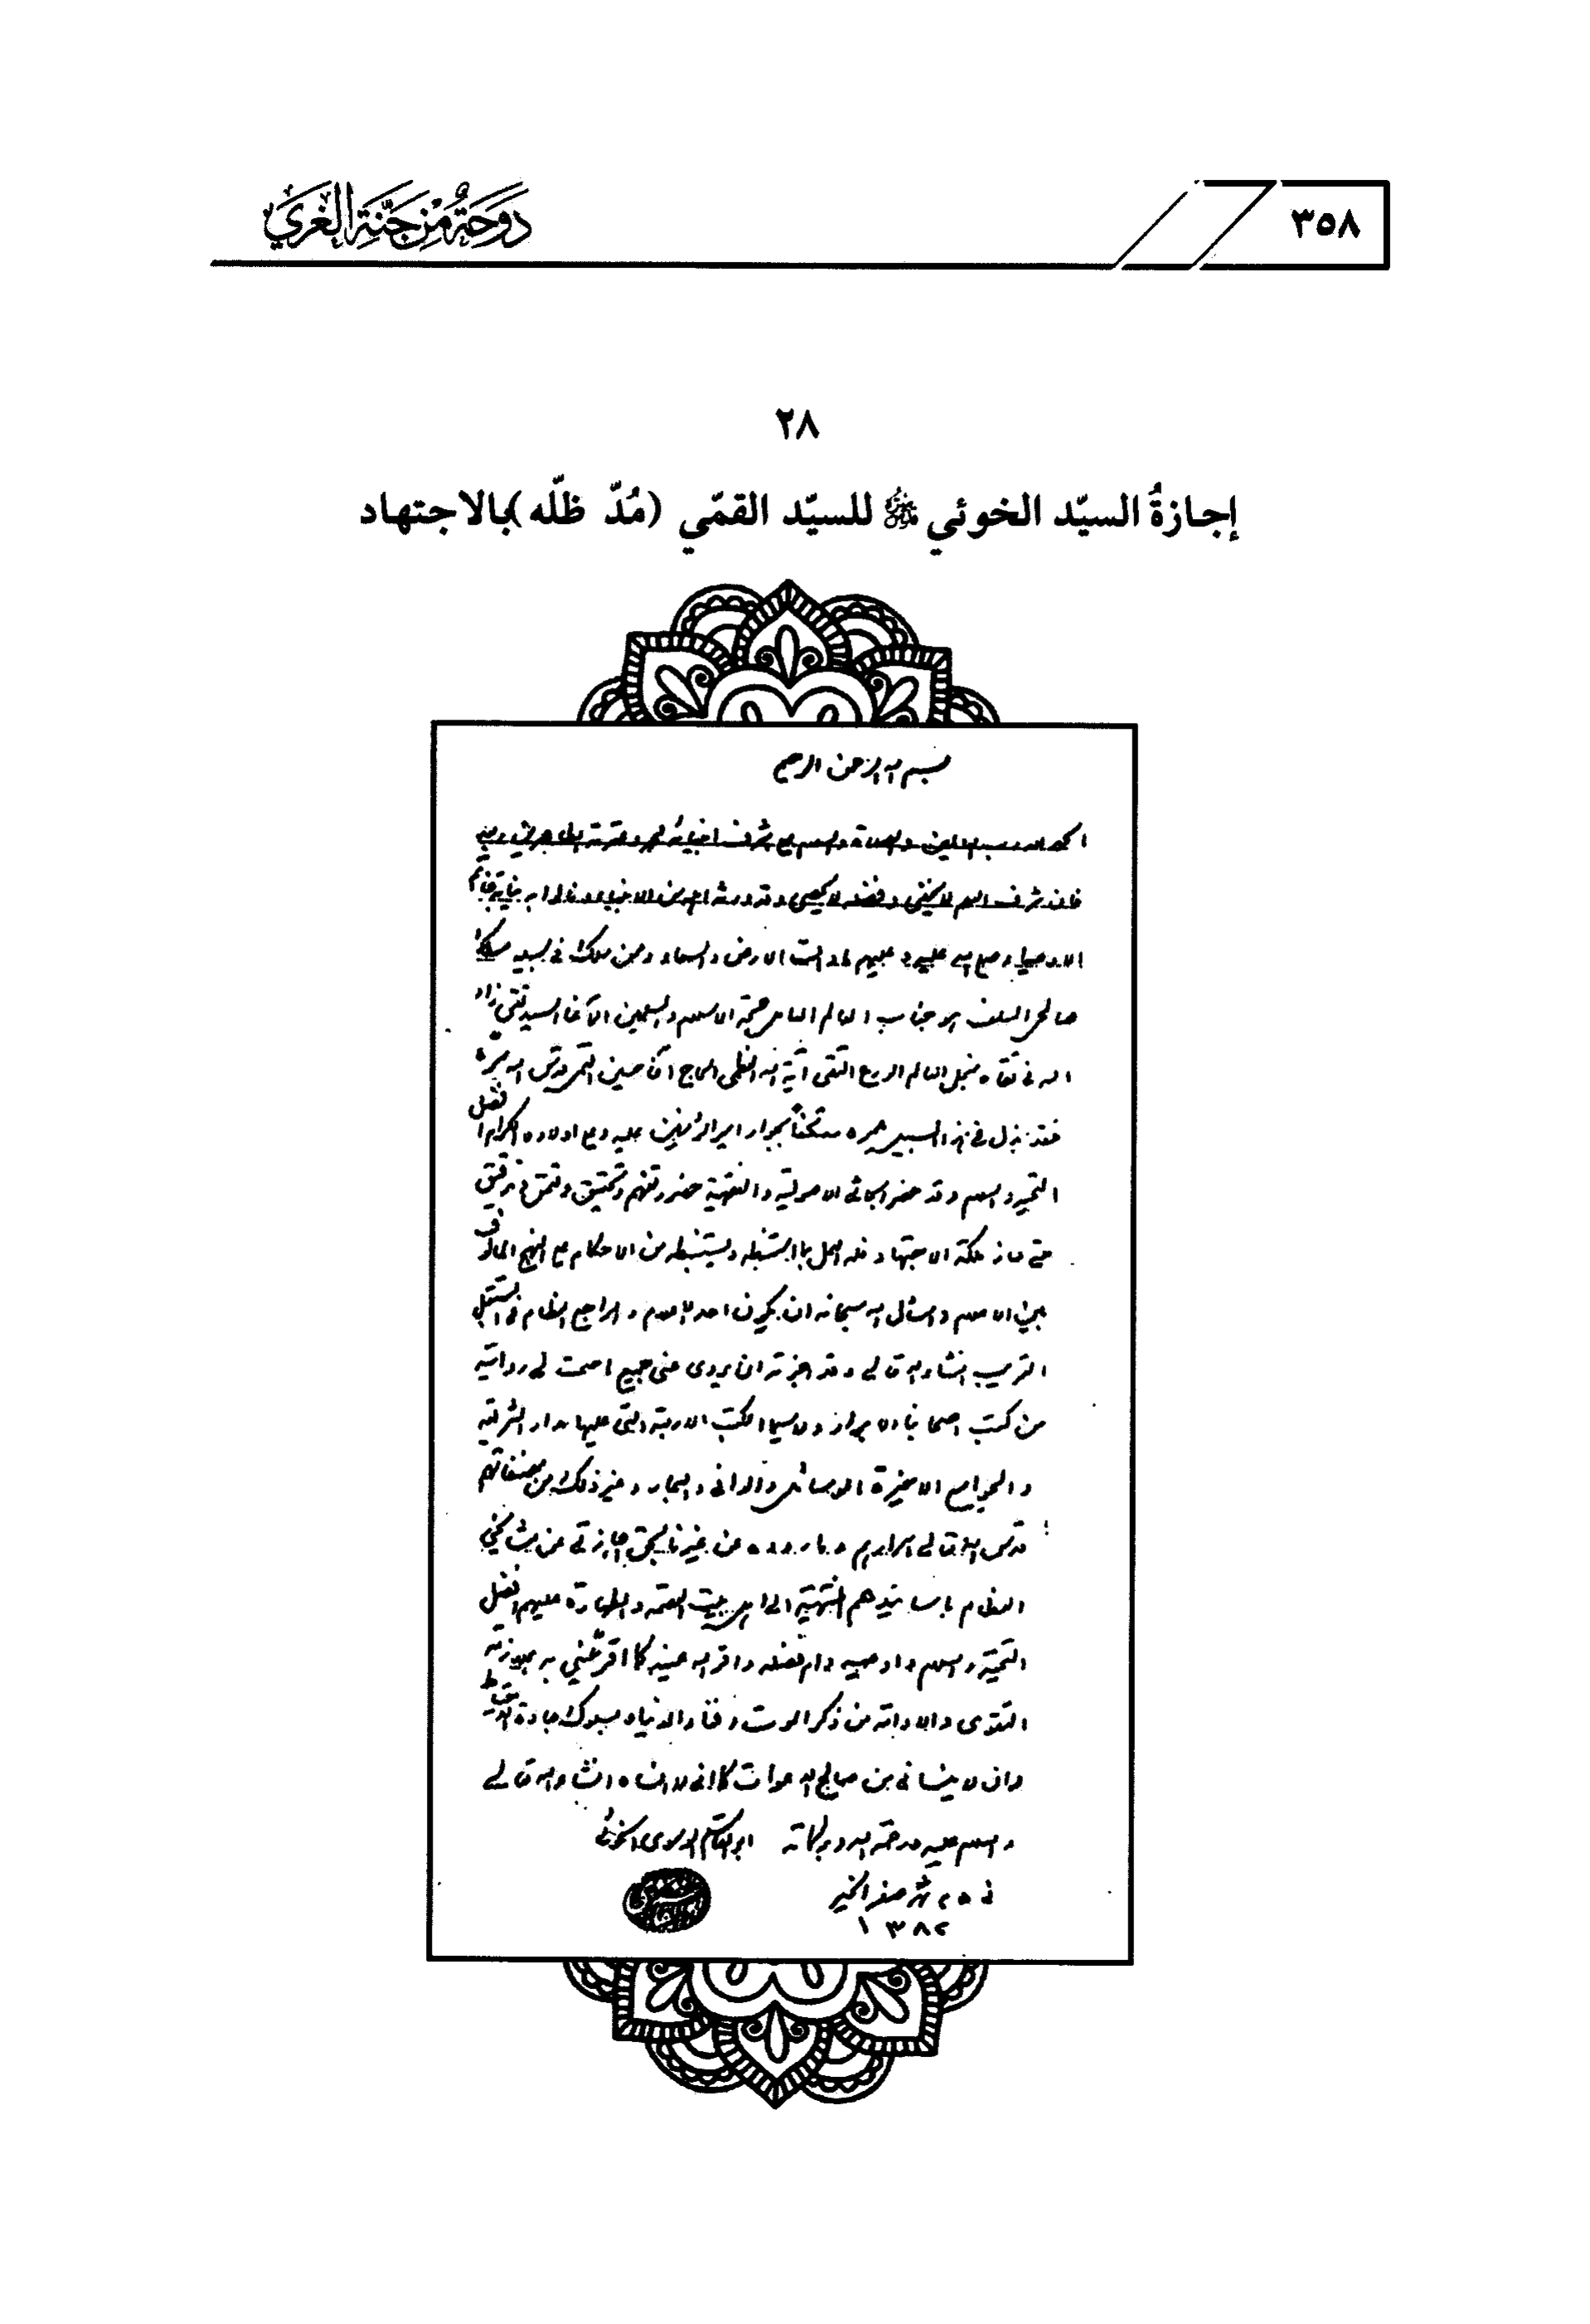 ٣٥٨
دَوحَةٌ مِن جَنَّةِ الغَري
٢٨
إجازةُ السيّد الخوئي للسيّد القمّي (مُدّ ظلّه) بالاجتهاد
بسم الله الرحمن الرحيم
الحمد لله رب العالمين والصلاة والسلام على اشرف انبيائه محمد وعترته الطاهرين وبعد
فان شرف العلم لا يخفى وفضله لا يحصى وقد ورثه اهله من الانبياء ونالوا به نيابة خاتم
الاوصياء صلى الله عليه وعليهم ما دامت الارض والسماء وممن سلك في سبيله مسلك
صالحي السلف هو جناب العالم العامل حجة الاسلام والمسلمين الآغا السيد تقي زاد
الله في تقاه نجل العالم الورع التقي آية الله العظمى الحاج آقا حسين القمي قدس الله سره
فقد بذل في هذا السبيل عمره معتكفاً بجوار امير المؤمنين عليه وعلى اولاده الكرام افضل
التحية والسلام وقد حضر ابحاثي الاصولية والفقهية حضور تفهم وتحقيق وتعمق وتدقيق
حتى حاز ملكة الاجتهاد فله العمل بما استنبطه ويستنبطه من الاحكام على النهج المألوف
بين الاعلام واسأل الله سبحانه ان يكون احد الاعلام والمراجع العظام في المستقبل
القريب انشاء الله تعالى وقد اجزته ان يروي عني جميع ما صحت لي روايته
من كتب اصحابنا الابرار ولا سيما الكتب الاربعة التي عليها مدار الشريعة
والجوامع الاخيرة الوسائل والوافي والبحار وغير ذلك من مصنفاتهم
قدس الله تعالى اسرارهم وما رووه عن غيرنا بحق اجازتي عن مشايخي
العظام باسانيدهم المنتهية الى اهل بيت العصمة والطهارة عليهم افضل
التحية والسلام واوصيه دام فضله واقر الله عينه كما اقر عيني به بملازمة
التقوى والادامة من ذكر الموت وفناء الدنيا وسلوك جادة الاحتياط
وان لا ينساني من صالح الدعوات كما اني لا انساه انشاء الله تعالى
والسلام عليه ورحمة الله وبركاته ابو القاسم الموسوي الخوئي
في ٢٥ شهر صفر الخير
١٣٨٢